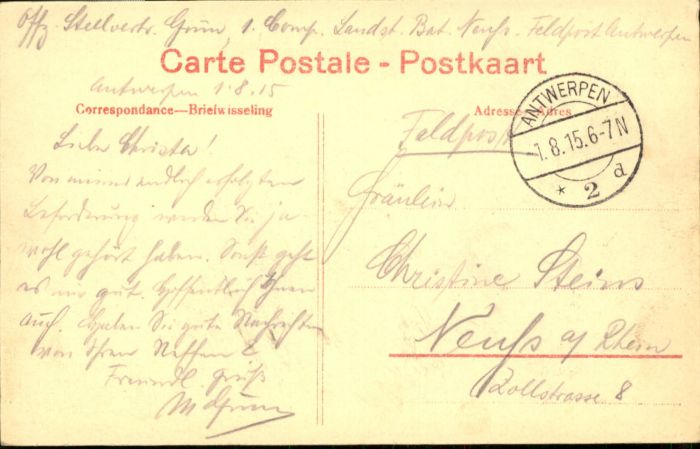 Offz. Stellvertr. Grün, 1. Comp. Landst. Bat. Neuß. Feldpost Antwerpen
Carte Postale - Postkaart
Antwerpen 1.8.15
Correspondance—Briefwisseling
Adresse—Adres
ANTWERPEN
1.8.15.6-7N
* 2 d
Liebe Christa!
Von meiner endlich erfolgten
Beförderung werden Sie ja
wohl gehört haben. Sonst geht
es mir gut. Hoffentlich Ihnen
auch. Haben Sie gute Nachrichten
von Ihren Neffen?
Freundl. Gruß
Grün
Feldpost
Fräulein
Christine Steins
Neuß a/Rhein
Zollstrasse 8